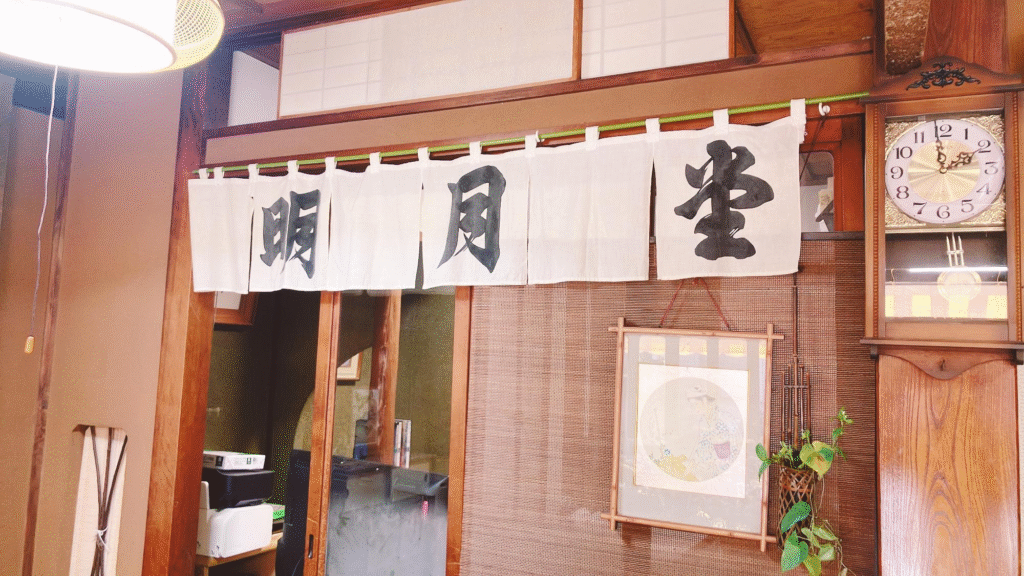 明月堂
12
1
2
3
4
5
6
7
8
9
10
11